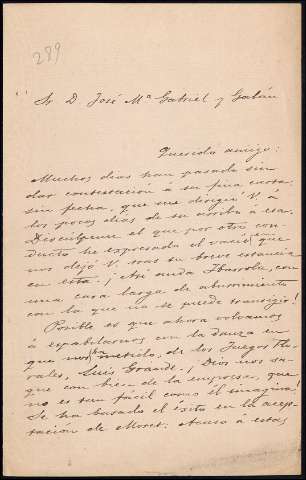 289
Sr D. José Mª Gabriel y Galán
Querido amigo:
Muchos dias han pasado sin
dar contestación á su fina carta,
sin fecha, que me dirigió V. á
los pocos dias de su arribo á esa.
Discúlpeme el que por otro con-
ducto he expresado el vacío que
nos dejó V. tras su breve estancia
en esta. ¡Ahi anda Ibarrola, con
una cara larga de aburrimiento
con la que no se puede transigir!
Posible es que ahora volvamos
á espabilarnos con la danza en
que nos ha metido, de los Juegos Flo-
rales, Luis Grande. ¡Dios nos sa-
que con bien de la empresa, que
no es tan fácil como él imagina!
Se ha basado el éxito en la acep-
tación de Moret. Acaso á estas